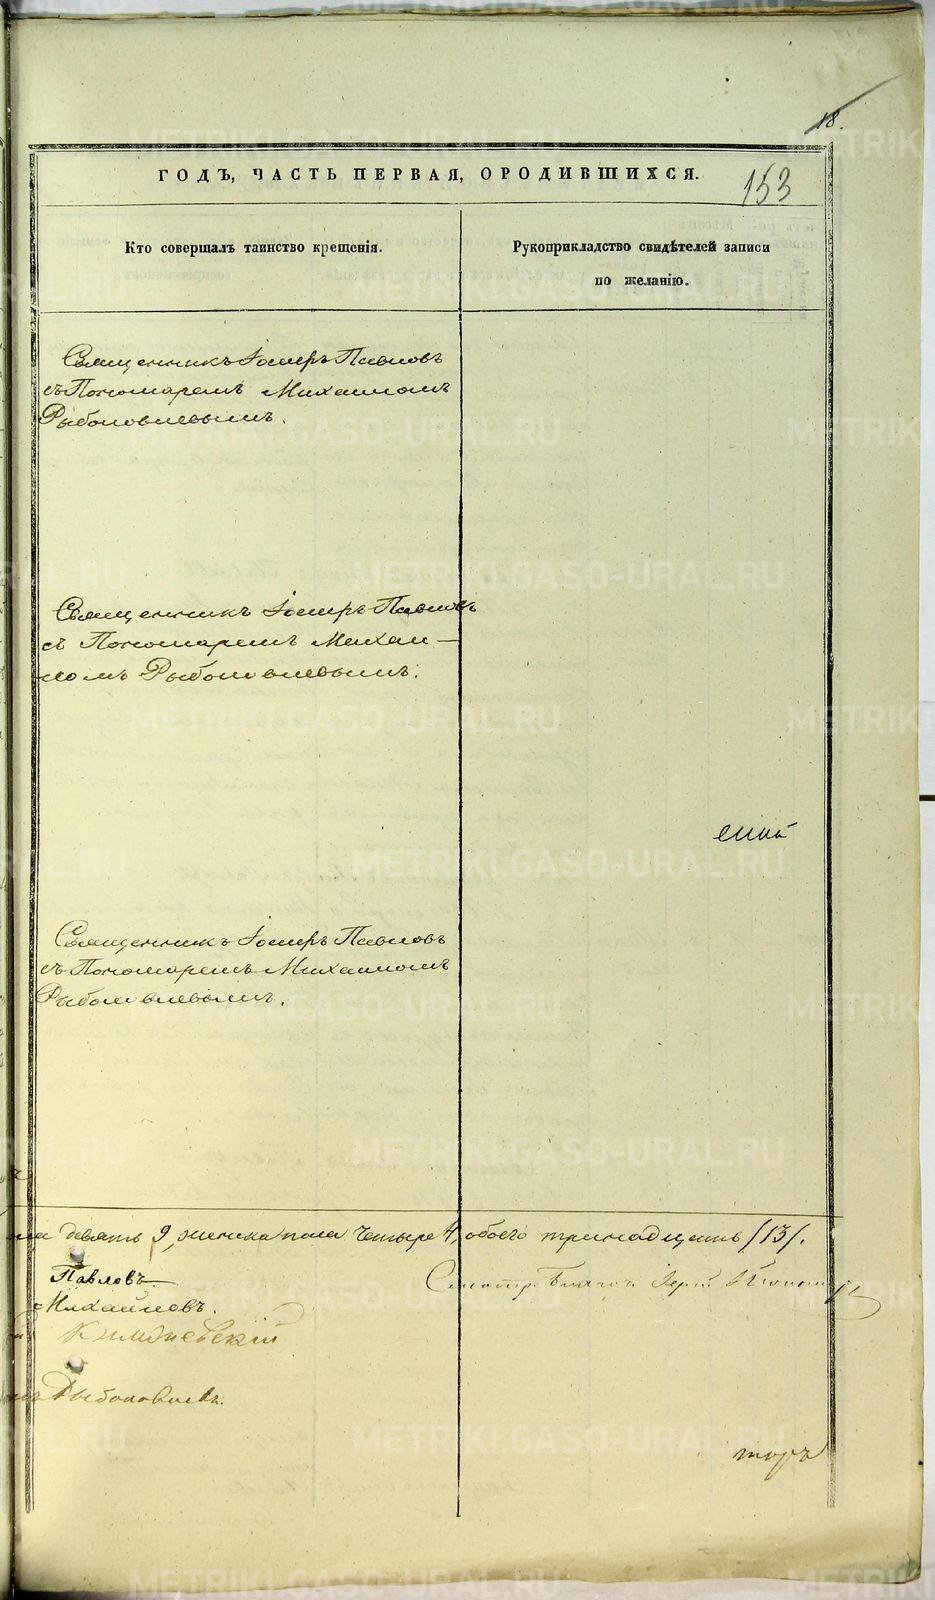 18.
ГОДЪ, ЧАСТЬ ПЕРВАЯ, ОРОДИВШИХСЯ.
153
Кто совершалъ таинство крещенія.
Рукоприкладство свидѣтелей записи
по желанію.
Священникъ Іосифъ Павловъ
съ Пономаремъ Михаиломъ
Рыболовлевымъ.
Священникъ Іосифъ Павловъ
съ Пономаремъ Михаи-
ломъ Рыболовлевымъ.
Священникъ Іосифъ Павловъ
съ Пономаремъ Михаиломъ
Рыболовлевымъ.
ла девять 9, женска пола четыре 4, обоего тринадцать /13/.
Павловъ
Михайловъ.
Рыболовлевъ.
METRIKI.GASO-URAL.RU